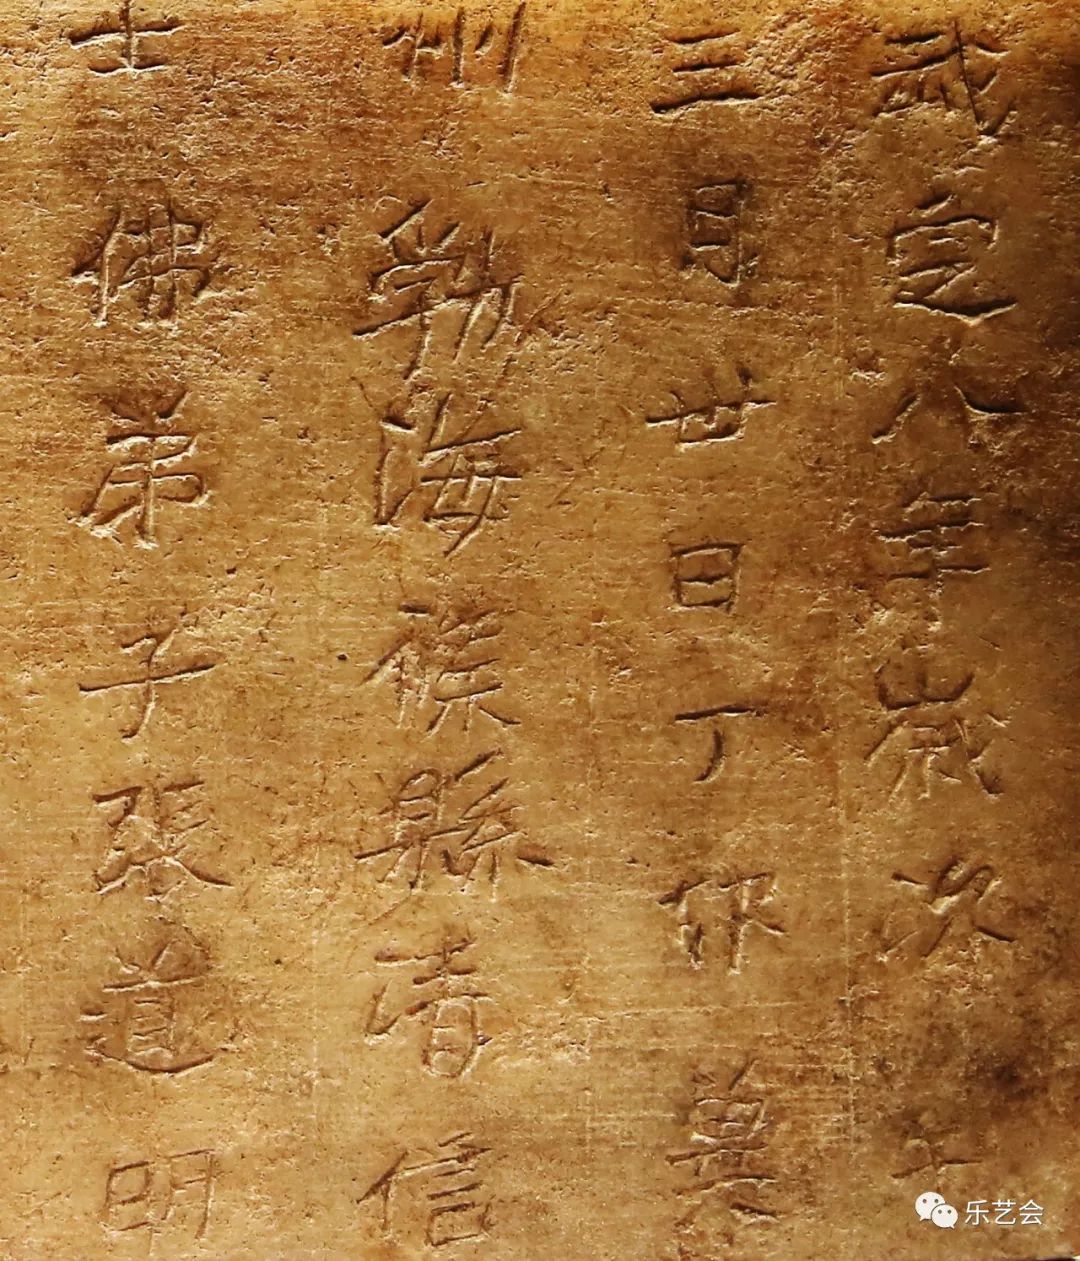 武定八年歲次午
三月廿日丁卯冀
州勃海條縣清信
士佛弟子張道明
乐艺会